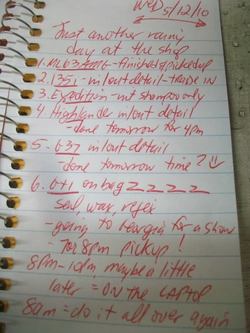 WEDS/12/10
Just another rainy
day at the shop
1. ML63 AMG - finished/picked up
2. 1351 - in/out detail - TRADE IN
3. Expedition - int shampoo only
4. Highlander in/out detail
- done tomorrow for 4pm
5. 637 in/out detail
- done tomorrow time?
6. on bag ZZZZ
seal, wax, refix
- going to Georgia for a show
- for 8pm pickup!
8pm - 10pm maybe a little
later = ON THE LAPTOP
8am = do it all over again